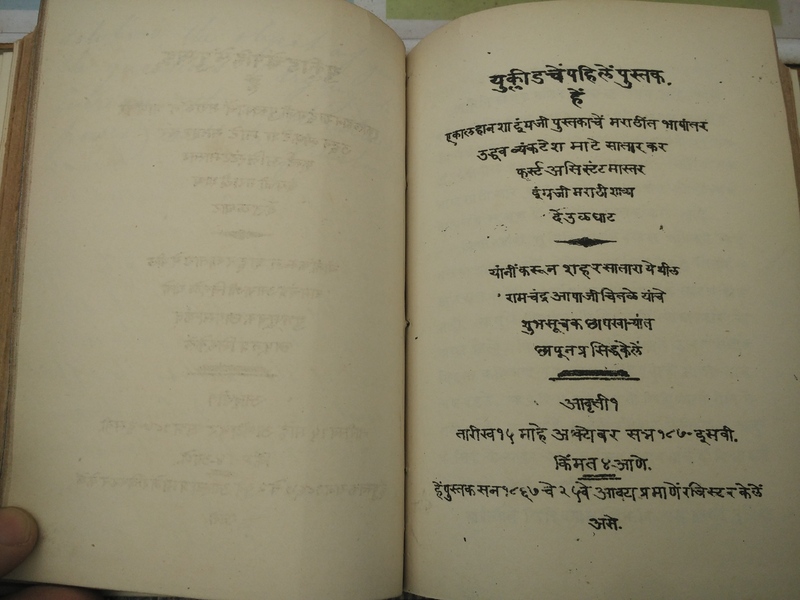 युक्लीडचें पहिलें पुस्तक.
हें
एका लहानशा इंग्रजी पुस्तकाचें मराठींत भाषांतर
उद्धव व्यंकटेश माटे सातारकर
फर्स्ट असिस्टंट मास्तर
इंग्रजी मराठी शाळा
देउळघाट
यांनीं करून शहर सातारा येथील
रामचंद्र आपाजी चितळे यांचे
शुभसूचक छापखान्यांत
छापून प्रसिद्ध केलें
आवृत्ती १
तारीख १५ माहे अक्टोबर सन १८७० इसवी.
किंमत ४ आणे.
हें पुस्तक सन १८६७ चे २५ वे आक्टाप्रमाणें रजिस्टर केलें
असे.